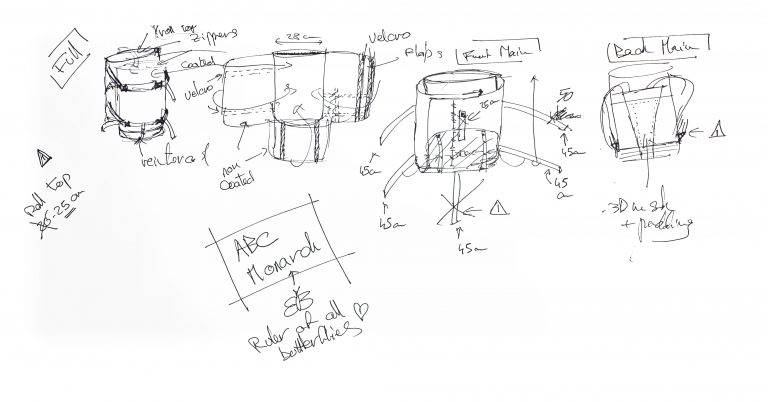 Full
Roll top
zippers
coated
velcro
reinforced
28 cm
velcro
flaps
non
coated
Front Main
25cm
50
45cm
45
cm
45cm
45cm
45cm
Back Main
3D mesh
+ padding
Roll top
25 cm
ABC
Monarch
Ruler of all
butterflies